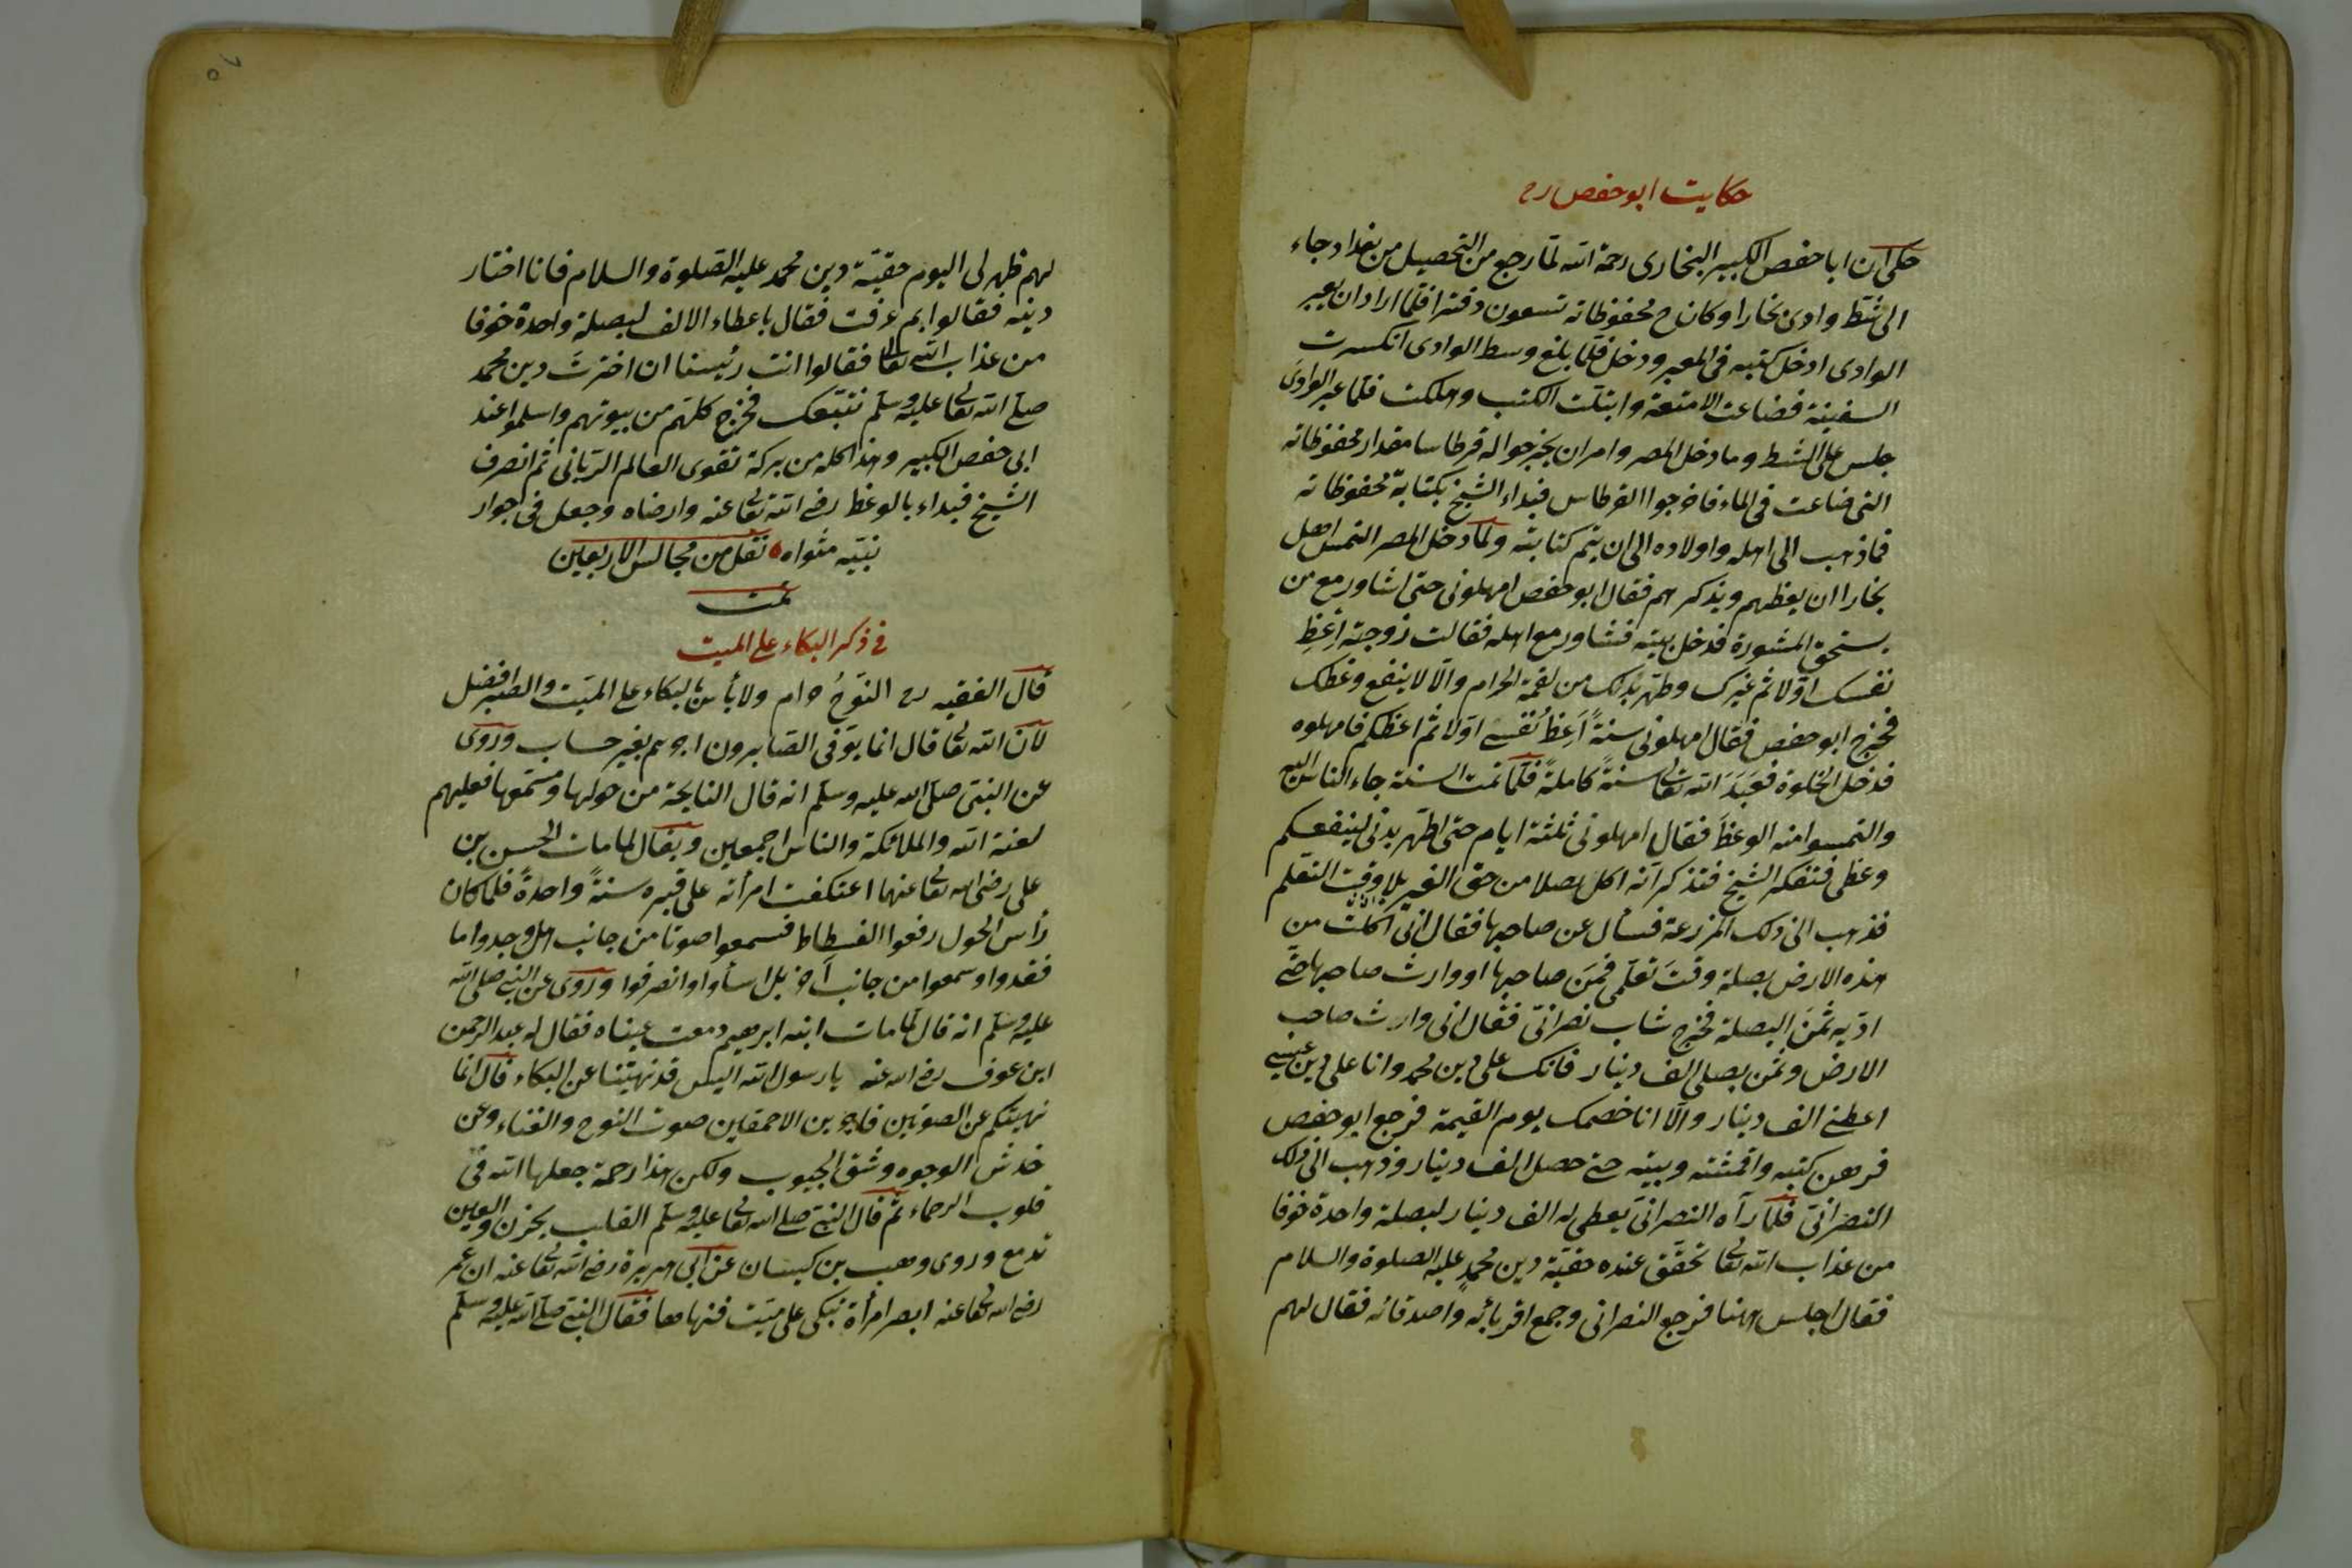 حكايت ابو حفص رح
حكى ان ابا حفص الكبير البخارى رحمة الله لما رجع من التحصيل من بغداد جاء
الى شط وادى بخارا وكان ح محفوظاته تسعون دفترا فلما اراد ان يعبر
الوادى ادخل كتبه فى المعبر ودخل فلما بلغ وسط الوادى انكسرت
السفينة فضاعت الامتعة وابتلت الكتب وهلكت فلما عبر الوادى
جلس على الشط وما دخل المصر وامر ان يخرجوا له قرطاسا مقدار محفوظاته
التى ضاعت فى الماء فاخرجوا القرطاس فبداء الشيخ بكتابة محفوظاته
فما ذهب الى اهله واولاده الى ان يتم كتابته ولما دخل المصر التمس اهل
بخارا ان يعظهم ويذكرهم فقال ابو حفص امهلونى حتى اشاور مع من
يستحق المشورة فدخل بيته فشاور مع اهله فقالت زوجته اعظ
نفسك اولا ثم غيرك وطهر بدنك من لقمة الحرام والا لا ينفع وعظك
فخرج ابو حفص فقال امهلونى سنة اعظ نفسى اولا ثم اعظكم فامهلوه
فدخل الخلوة فعبد الله تعا سنة كاملة فلما تمت السنة جاء الناس اليه
والتمسوا منه الوعظ فقال امهلونى ثلثة ايام حتى اطهر بدنى لينفعكم
وعظى فتفكر الشيخ فتذكر انه اكل بصلا من حق الغير بلا وقت التعلم
فذهب الى ذلك المزرعة فسأل عن صاحبها فقال انى اكلت من
هذه الارض بصلة وقت تعلمى فمن صاحبها او وارث صاحبها حتى
اديه ثمن البصلة فخرج شاب نصرانى فقال انى وارث صاحب
الارض وثمن بصلى الف دينار فانك على دين محمد وانا على دين عيسى
اعطنى الف دينار والا انا خصمك يوم القيمة فرجع ابو حفص
فرهن كتبه واقمشته وبيته حتى حصل الف دينار وذهب الى ذلك
النصرانى فلما رآه النصرانى يعطى له الف دينار لبصلة واحدة خوفا
من عذاب الله تعا تحقق عنده حقية دين محمد عليه الصلوة والسلام
فقال اجلس ههنا فرجع النصرانى وجمع اقربائه واصدقائه فقال لهم
لهم ظهر لى اليوم حقية دين محمد عليه الصلوة والسلام فانا اختار
دينه فقالوا بم عرفت فقال باعطاء الالف لبصلة واحدة خوفا
من عذاب الله تعا فقالوا انت رئيسنا ان اخترت دين محمد
صلى الله تعا عليه وسلم نتبعك فخرج كلهم من بيوتهم واسلموا عند
ابى حفص الكبير وهذا كله من بركة تقوى العالم الربانى ثم انصرف
الشيخ فبداء بالوعظ رضى الله تعا عنه وارضاه وجعل فى جوار
نبيه مثواه نقل من مجالس الاربعين
تمت
فى ذكر البكاء على الميت
قال الفقيه رح النوح حرام ولا بأس بالبكاء على الميت والصبر افضل
لان الله تعا قال انما يوفى الصابرون اجرهم بغير حساب وروى
عن النبى صلى الله عليه وسلم انه قال النايحة من حولها ومستمعها فعليهم
لعنة الله والملائكة والناس اجمعين ويقال لما مات الحسن بن
على رضى الله تعا عنهما اعتكفت امرأته على قبره سنة واحدة فلما كان
رأس الحول رفعوا الفسطاط فسمعوا صوتا من جانب هل وجدوا ما
فقدوا وسمعوا من جانب آخر بل اسأوا وانصرفوا وروى عن النبى صلى الله
عليه وسلم انه قال لما مات ابنه ابرهيم دمعت عيناه فقال له عبد الرحمن
ابن عوف رضى الله عنه يا رسول الله اليس قد نهيتنا عن البكاء قال انما
نهيتكم عن الصوتين فاجرين الاحمقين صوت النوح والغناء وعن
خدش الوجوه وشق الجيوب ولكن هذا رحمة جعلها الله فى
قلوب الرحماء ثم قال النبى صلى الله تعا عليه وسلم القلب يحزن والعين
تدمع وروى وهب بن كيسان عن ابى هريرة رضى الله تعا عنه ان عمر
رضى الله تعا عنه ابصر امرأة تبكى على ميت فنهاها فقال النبى صلى الله عليه وسلم